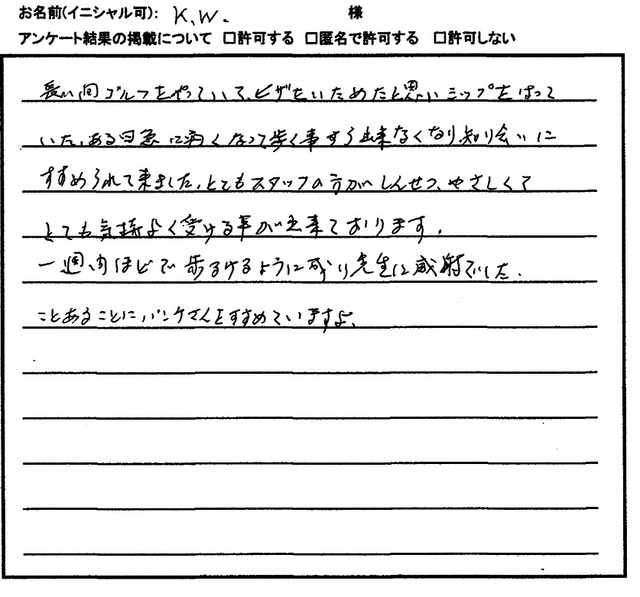 お名前(イニシャル可): K.W. 様
アンケート結果の掲載について □許可する □匿名で許可する □許可しない
長い間ゴルフをやっていて、ヒザをいためたと思いシップをはって
いた、ある日急に痛くなって歩く事すら出来なくなり知り合いに
すすめられて来ました。とてもスタッフの方がしんせつ、やさしくて
とても気持よく受ける事が出来ております。
一週間ほどで歩るけるように成り先生に感謝でした。
ことあることにバンケさんをすすめていますよ。